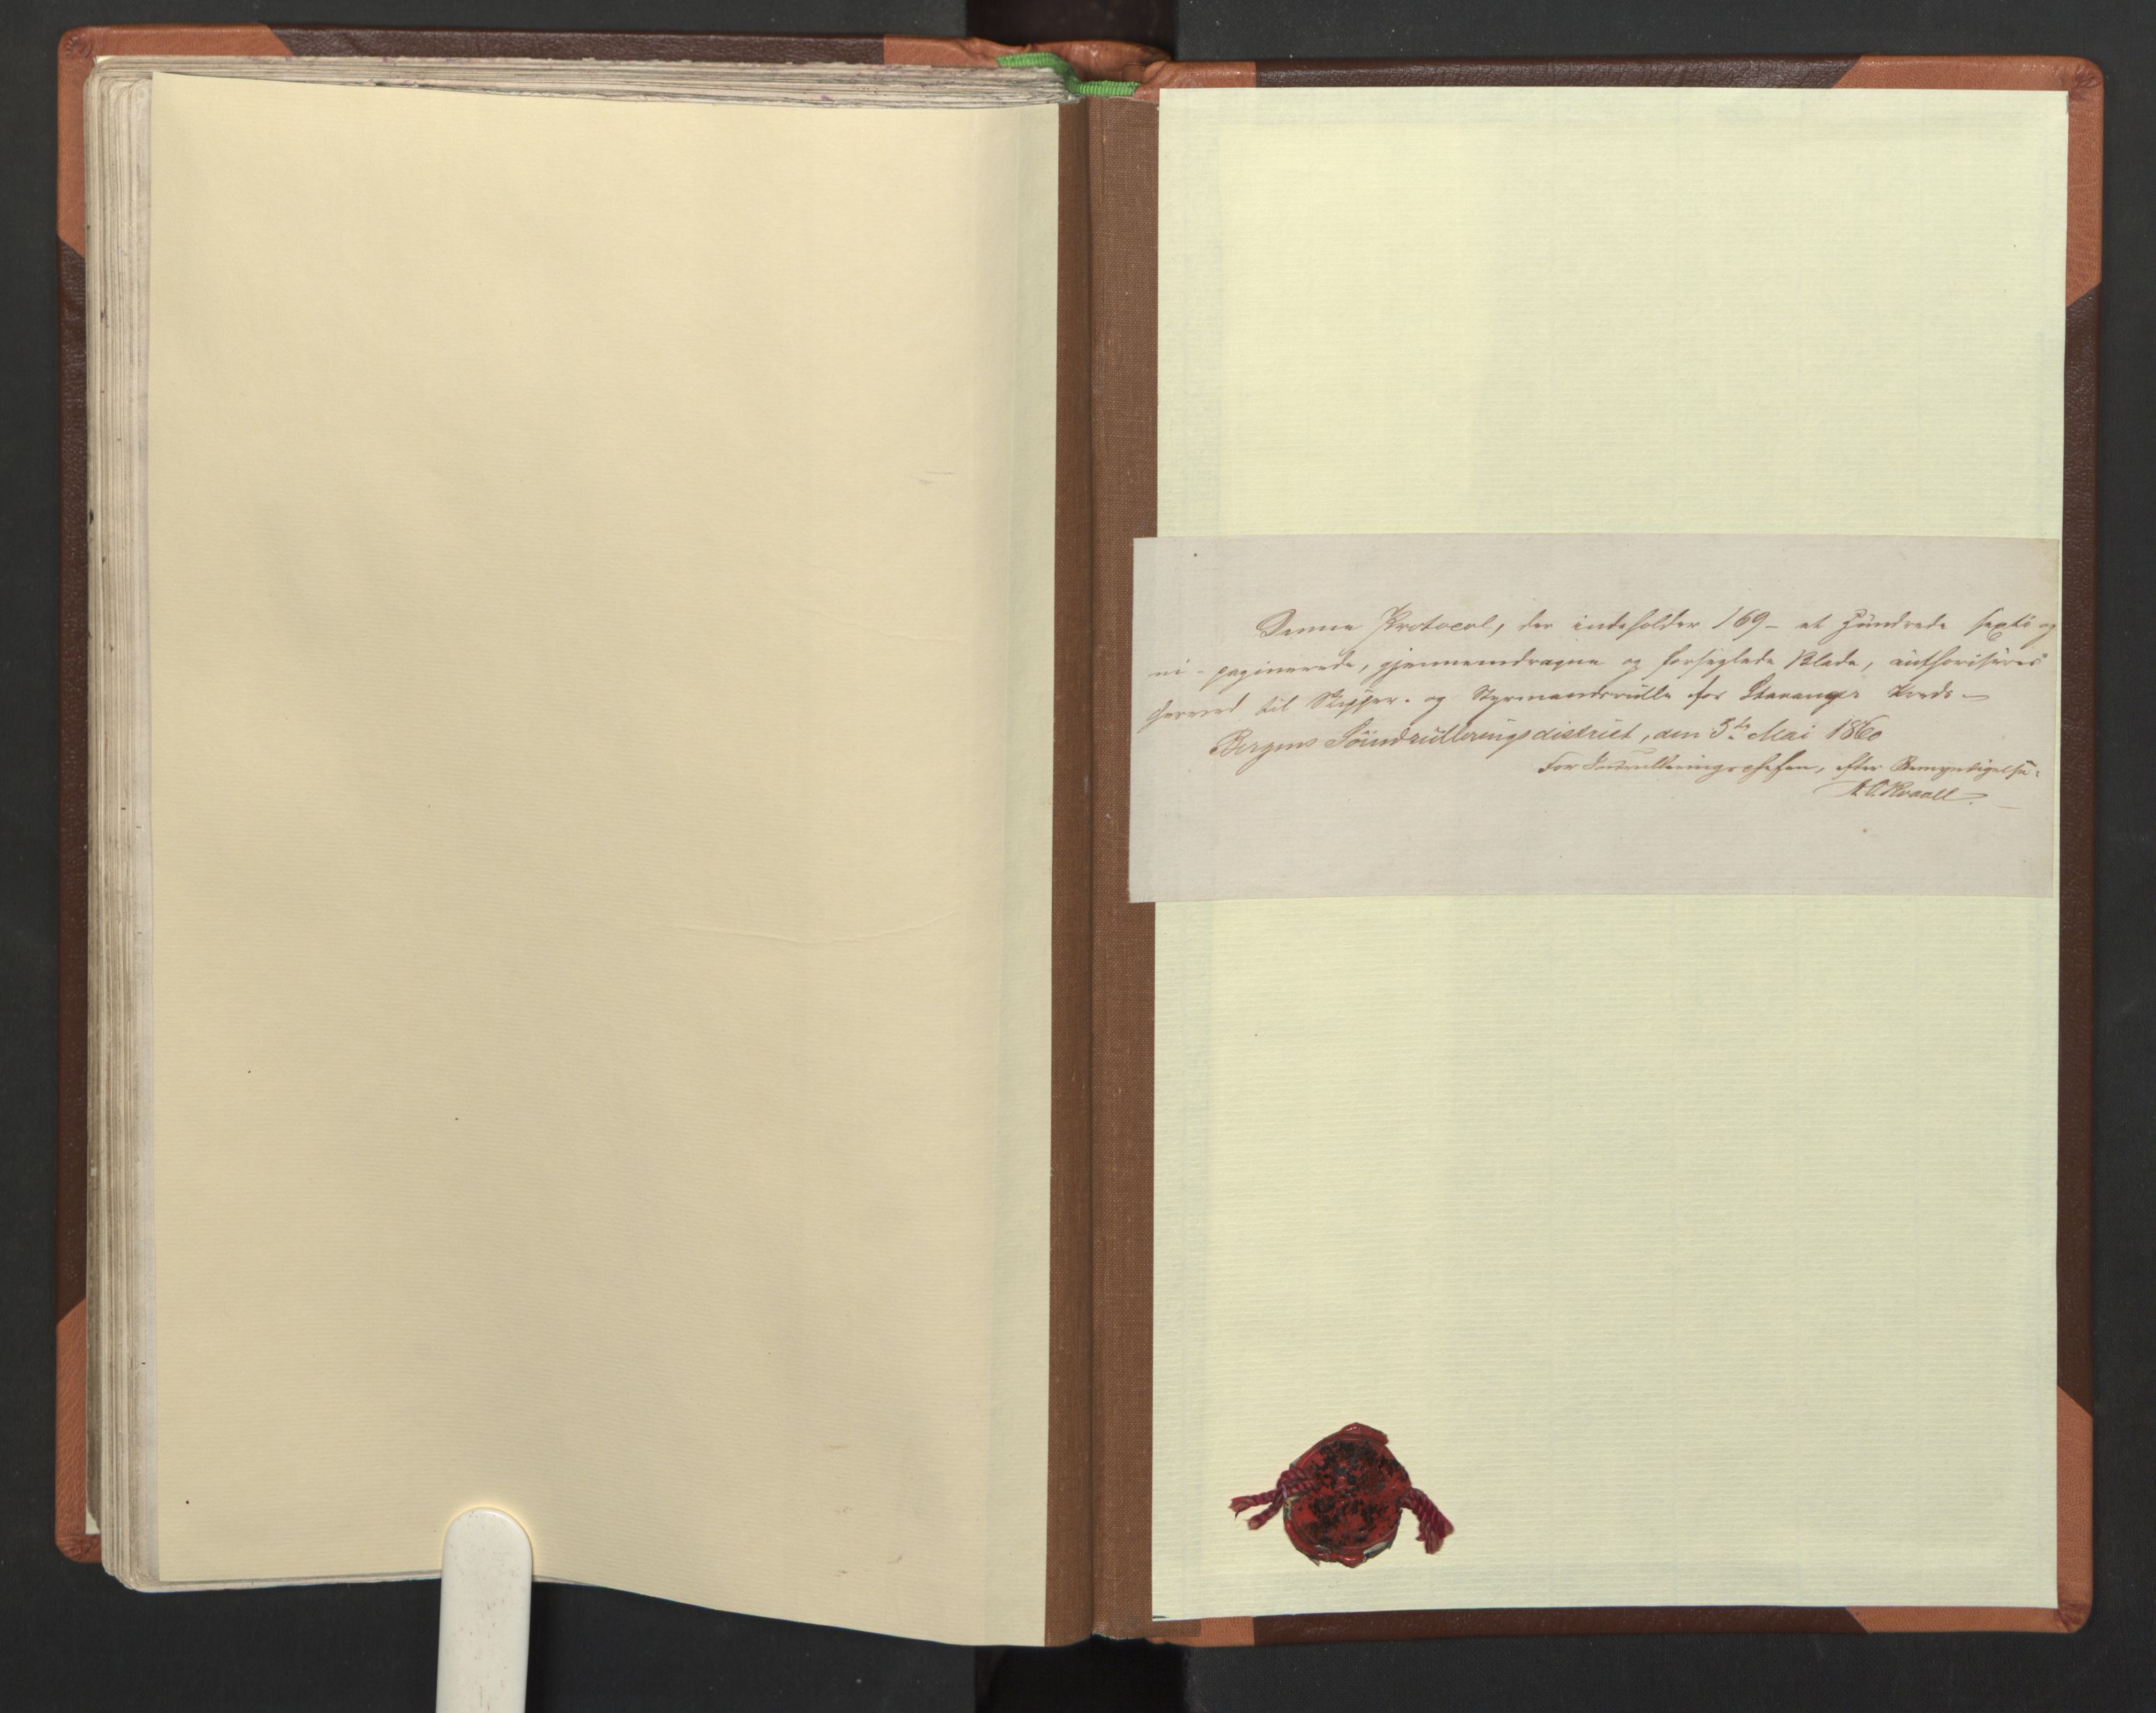 Denne Protocol, der indeholder 169 – et Hundrede sexti og
ni – paginerede, gjennemdragne og forseglede Blade, authoriseres
herved til Skipper- og Styrmandsrulle for Stavanger Kreds –
Bergens Söindrulleringsdistrict, den 5te Mai 1860
For Indrulleringschefen, efter Bemyndigelse: